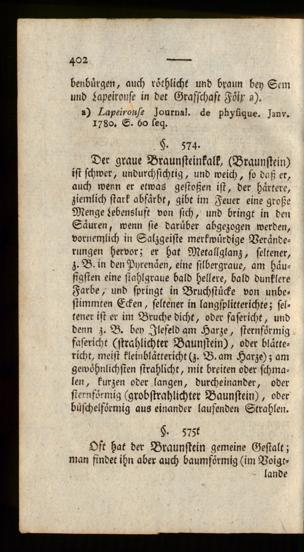 402
benbürgen, auch röthlicht und braun bey Sem
und Lapeirouse in der Grafschaft Foix a).
a) Lapeirouse Journal. de physique. Janv.
1780. S. 60 seq.
§. 574.
Der graue Braunsteinkalk, (Braunstein)
ist schwer, undurchsichtig, und weich, so daß er,
auch wenn er etwas gestoßen ist, der härtere,
ziemlich stark abfärbt, gibt im Feuer eine große
Menge Lebensluft von sich, und bringt in den
Säuren, wenn sie darüber abgezogen werden,
vornemlich in Salzgeiste merkwürdige Verände-
rungen hervor; er hat Metallglanz, seltener,
z. B. in den Pyrenäen, eine silbergraue, am häu-
figsten eine stahlgraue bald hellere, bald dunklere
Farbe, und springt in Bruchstücke von unbe-
stimmten Ecken, seltener in langsplitterichte; sel-
tener ist er im Bruche dicht, oder fasericht, und
denn z. B. bey Ilefeld am Harze, sternförmig
fasericht (strahlichter Baunstein), oder blätte-
richt, meist kleinblättericht (z. B. am Harze); am
gewöhnlichsten strahlicht, mit breiten oder schma-
len, kurzen oder langen, durcheinander, oder
sternförmig (grobstrahlichter Baunstein), oder
büschelförmig aus einander laufenden Strahlen.
§. 575.
Oft hat der Braunstein gemeine Gestalt;
man findet ihn aber auch baumförmig (im Voigt-
lande